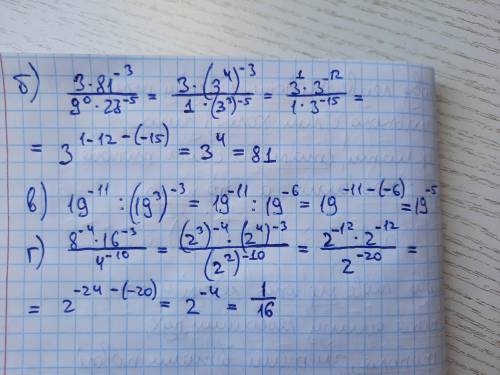 б) (3 · 81⁻³)/(9⁰ · 27⁻⁵) = (3 · (3⁴)⁻³)/(1 · (3³)⁻⁵) = (3¹ · 3⁻¹²)/(1 · 3⁻¹⁵) =
= 3¹⁻¹²⁻⁽⁻¹⁵⁾ = 3⁴ = 81
в) 19⁻¹¹ : (19³)⁻³ = 19⁻¹¹ : 19⁻⁶ = 19⁻¹¹⁻⁽⁻⁶⁾ = 19⁻⁵
г) (8⁻⁴ · 16⁻³)/(4⁻¹⁰) = ((2³)⁻⁴ · (2⁴)⁻³)/((2²)⁻¹⁰) = (2⁻¹² · 2⁻¹²)/(2⁻²⁰) =
= 2⁻²⁴⁻⁽⁻²⁰⁾ = 2⁻⁴ = 1/16